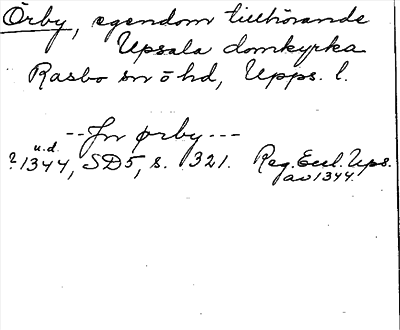 Örby, egendom tillhörande
Upsala domkyrka
Rasbo sn o hd, Upps. l.
--Jn ørby---
u.d.
?1344, SD5, s. 321. Reg. Eccl. Ups.
av 1344.